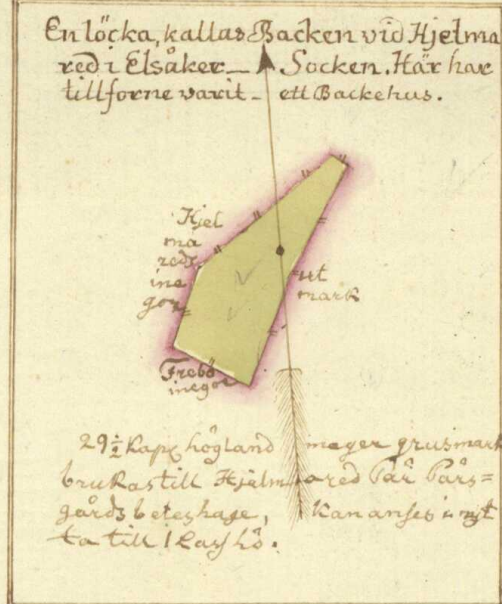 En löcka, kallas Backen vid Hjelma
red i Elsåker_ Socken. Här har
tillforne varit_ ett Backehus.
Hjel
ma
reds
ine
gor
ut
mark
Frebö
inegor
29½ Kapp högland mager grusmark
brukas till Hjelmared Pär Pärs=
gårds beteshage, kan anses i nyt
ta till 1 Lass hö.